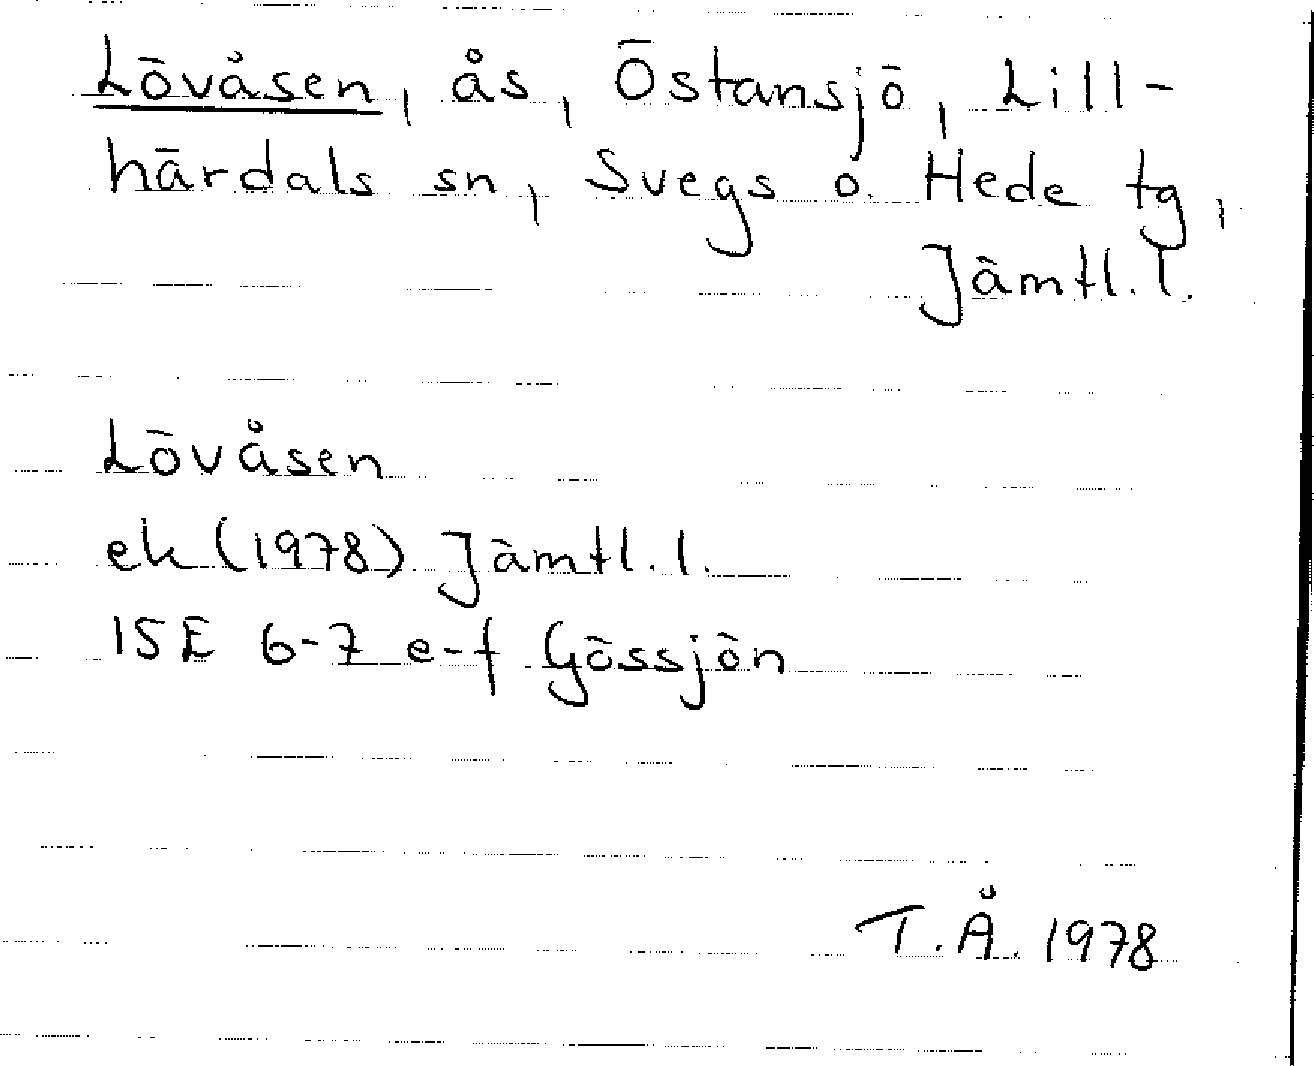 Lövåsen, ås, Östansjö, Lill-
härdals sn, Svegs o. Hede tg,
Jämtl. l.
Lövåsen
ek (1978) Jämtl. l.
15E 6-7 e-f Gössjön
T.Å. 1978